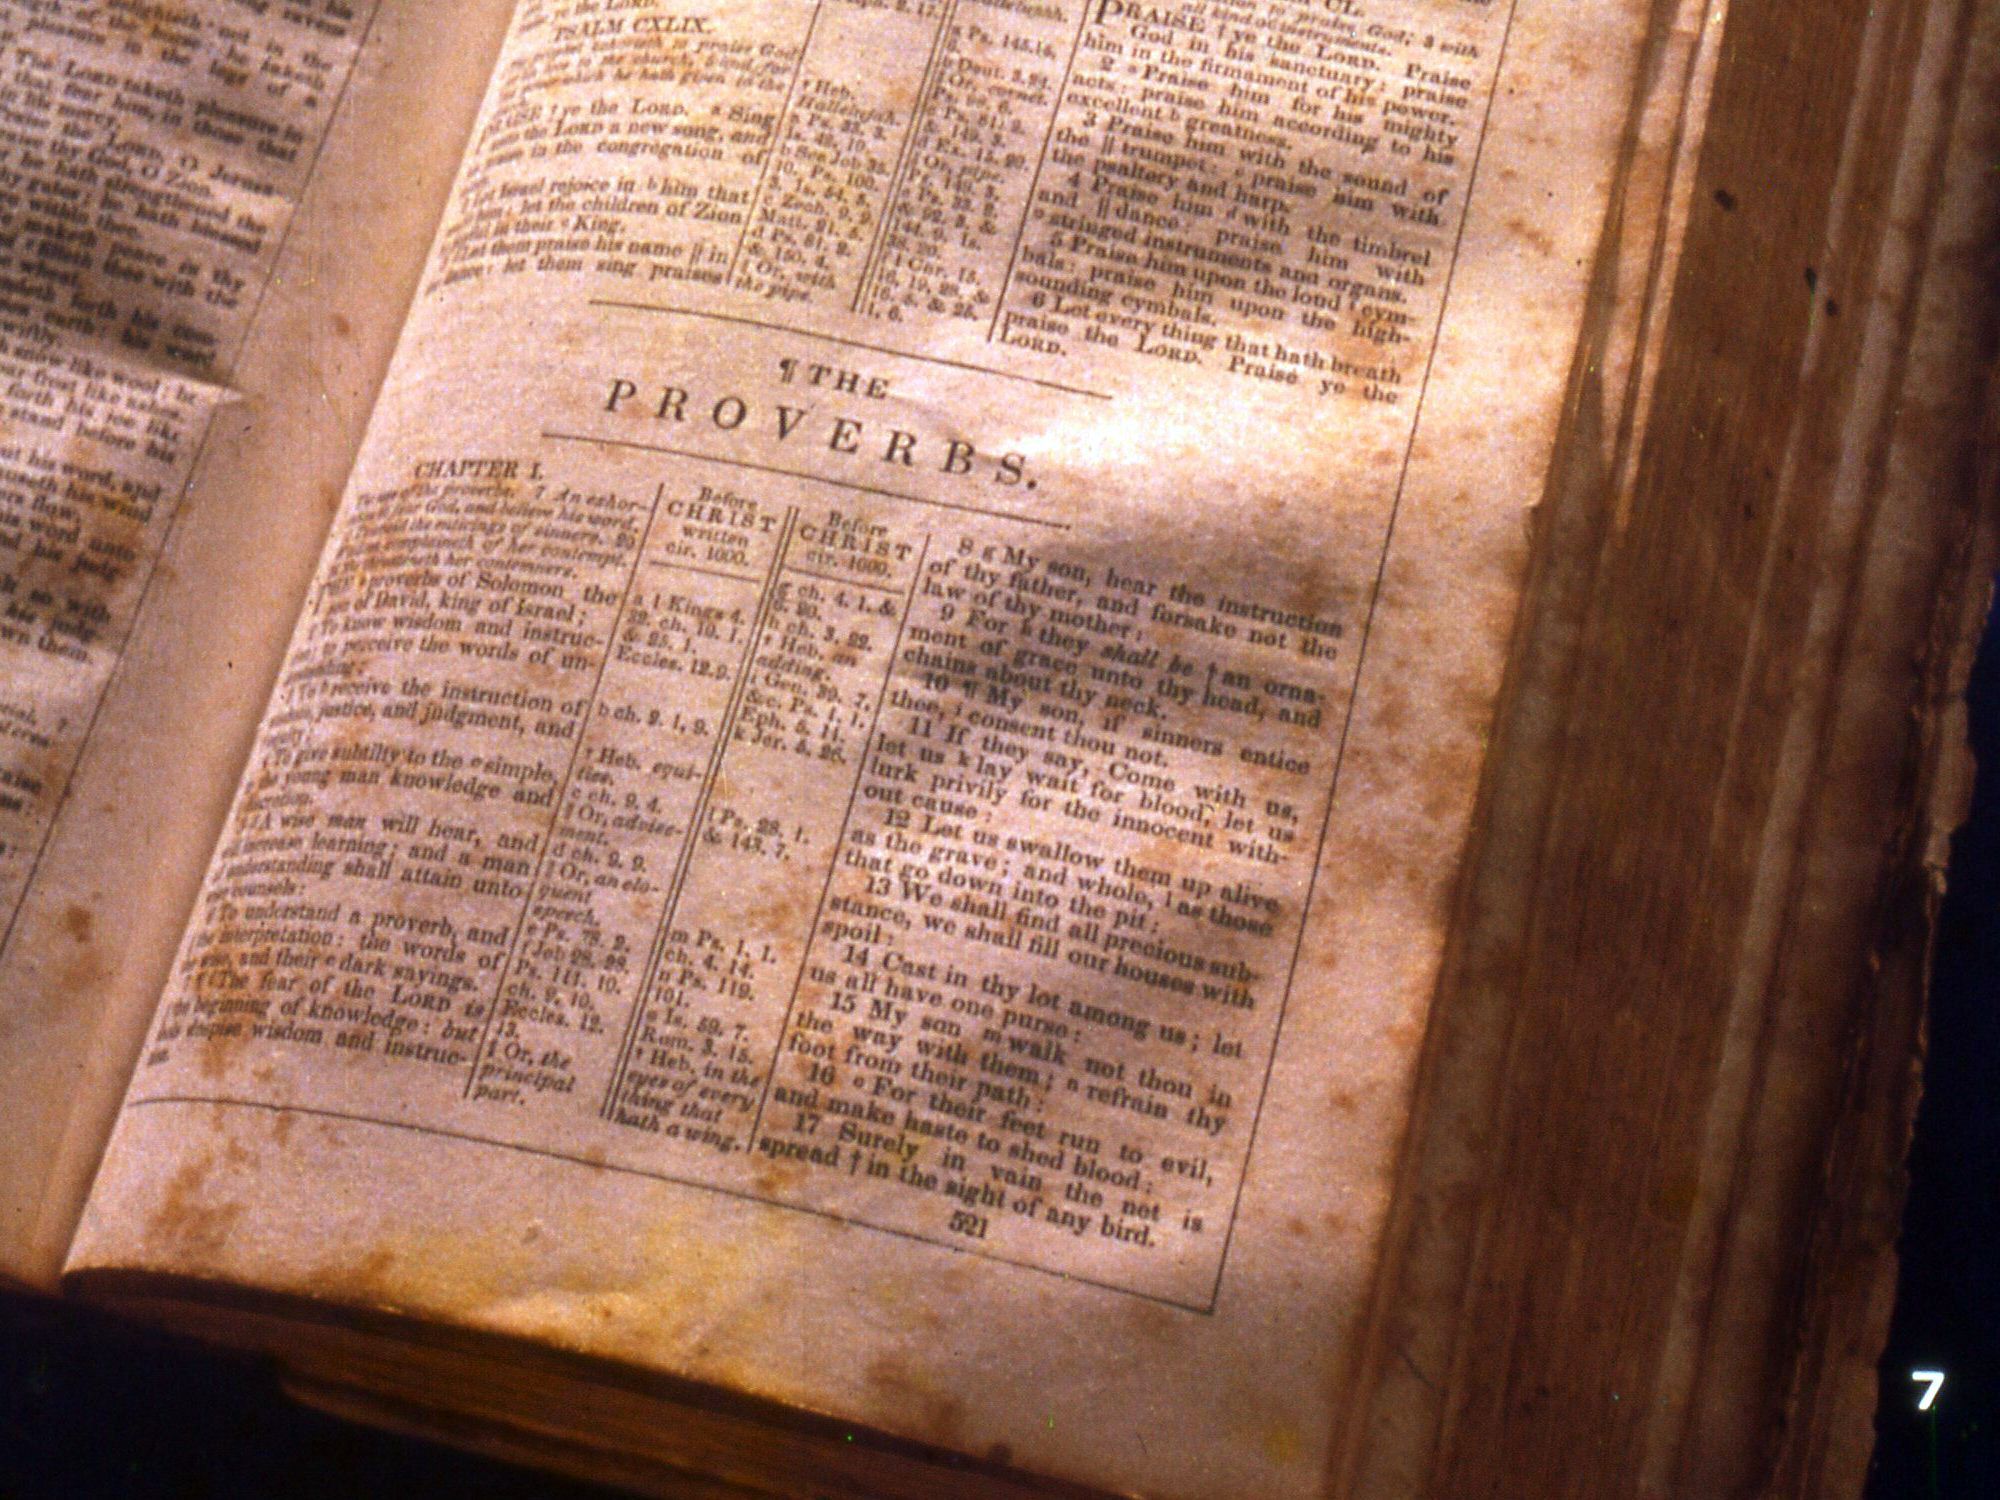 The LORD taketh pleasure in
that fear him, in those that
his mercy.
the LORD, O Jerusa-
thy God, O Zion.
he hath strengthened the
gates; he hath blessed
within thee.
maketh peace in thy
filleth thee with the
wheat.
sendeth forth his com-
earth: his word
swiftly.
snow like wool: he
frost like ashes.
forth his ice like
stand before his
out his word, and
causeth his wind
flow.
his word unto
and his judg-
so with
his judg-
them.
PSALM CXLIX.
PRAISE † ye the LORD. a Sing
the LORD a new song, and
in the congregation of
Let Israel rejoice in b him that
him: let the children of Zion
in their c King.
Let them praise his name || in
dance: let them sing praises
† Heb.
Hallelujah.
a Ps. 33. 3.
Is. 42. 10.
b See Job 35.
10. Ps. 100.
3. Is. 54. 5.
c Zech. 9. 9.
Matt. 21. 5.
d Ps. 81. 2.
& 150. 4.
|| Or, with
the pipe.
a Ps. 145. 5,
6.
b Deut. 3. 24.
|| Or, cornet.
c Ps. 98. 6.
Ps. 81. 2.
& 149. 3.
d Ex. 15. 20.
|| Or, pipe.
Ps. 149. 3.
e Ps. 33. 2.
& 92. 3. &
144. 9. Is.
38. 20.
f 1 Chr. 15.
16, 19, 28. &
16. 5. & 25.
1, 6.
CL.
praise God, 3 with
all kind of instruments.
PRAISE † ye the LORD. Praise
God in his sanctuary: praise
him in the firmament of his power.
2 a Praise him for his mighty
acts: praise him according to his
excellent b greatness.
3 Praise him with the sound of
the || trumpet: c praise him with
the psaltery and harp.
4 Praise him d with the timbrel
and || dance: praise him with
e stringed instruments and organs.
5 Praise him upon the loud f cym-
bals: praise him upon the high-
sounding cymbals.
6 Let every thing that hath breath
praise the LORD. Praise ye the
LORD.
¶ THE
PROVERBS.
CHAPTER I.
The use of the proverbs. 7 An exhor-
to fear God, and believe his word,
the enticings of sinners. 20
complaineth of her contempt.
threateneth her contemners.
THE a proverbs of Solomon the
son of David, king of Israel;
To know wisdom and instruc-
to perceive the words of un-
To b receive the instruction of
justice, and judgment, and
To give subtilty to the c simple,
the young man knowledge and
discretion.
d A wise man will hear, and
increase learning; and a man
understanding shall attain unto
counsels:
To understand a proverb, and
the interpretation; the words of
wise, and their e dark sayings.
f The fear of the LORD is
the beginning of knowledge: but
despise wisdom and instruc-
Before
CHRIST
written
cir. 1000.
a 1 Kings 4.
32. ch. 10. 1.
& 25. 1.
Eccles. 12. 9.
b ch. 2. 1, 9.
† Heb. equi-
ties.
c ch. 9. 4.
|| Or, advise-
ment.
d ch. 9. 9.
|| Or, an elo-
quent
speech.
e Ps. 78. 2.
f Job 28. 28.
Ps. 111. 10.
ch. 9. 10.
Eccles. 12.
13.
|| Or, the
principal
part.
Before
CHRIST
cir. 1000.
g ch. 4. 1. &
6. 20.
h ch. 3. 22.
† Heb. an
adding.
i Gen. 39. 7,
&c. Ps. 1. 1.
Eph. 5. 11.
k Jer. 5. 26.
l Ps. 28. 1.
& 143. 7.
m Ps. 1. 1.
ch. 4. 14.
n Ps. 119.
101.
o Is. 59. 7.
Rom. 3. 15.
† Heb. in the
eyes of every
thing that
hath a wing.
8 g My son, hear the instruction
of thy father, and forsake not the
law of thy mother:
9 For h they shall be † an orna-
ment of grace unto thy head, and
chains about thy neck.
10 ¶ My son, if sinners entice
thee, i consent thou not.
11 If they say, Come with us,
let us k lay wait for blood, let us
lurk privily for the innocent with-
out cause:
12 Let us swallow them up alive
as the grave; and whole, l as those
that go down into the pit:
13 We shall find all precious sub-
stance, we shall fill our houses with
spoil:
14 Cast in thy lot among us; let
us all have one purse:
15 My son m walk not thou in
the way with them; n refrain thy
foot from their path:
16 o For their feet run to evil,
and make haste to shed blood:
17 Surely in vain the net is
spread † in the sight of any bird.
521
7